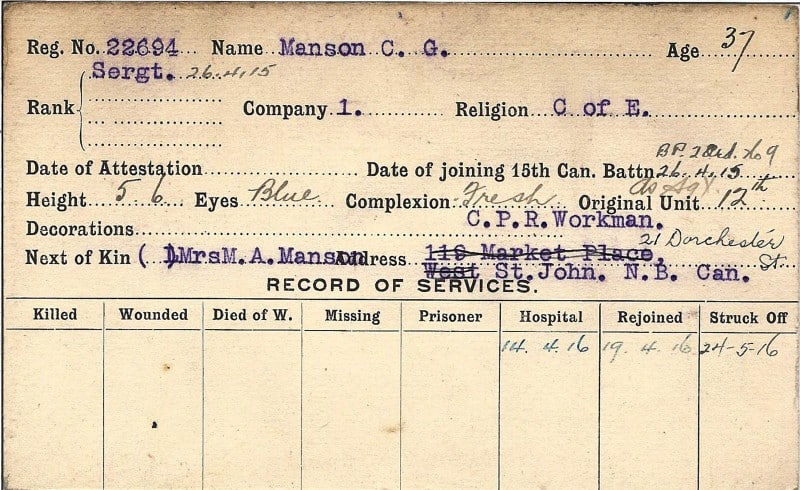 Reg. No. 22694 Name Manson C. G. Age 37
Sergt. 26.4.15
Rank Company 1. Religion C of E.
B.P. 2 Ord. No 9
Date of Attestation Date of joining 15th Can. Battn. 26.4.15
as Sgt.
Height 5 6 Eyes Blue Complexion Fresh Original Unit 12th
Decorations C.P.R.Workman.
21 Dorchester St.
Next of Kin ( ) MrsM.A.Manson Address 119 Market Place,
West St.John. N.B. Can.
RECORD OF SERVICES.
Killed Wounded Died of W. Missing Prisoner Hospital Rejoined Struck Off
14.4.16 19.4.16 24-5-16